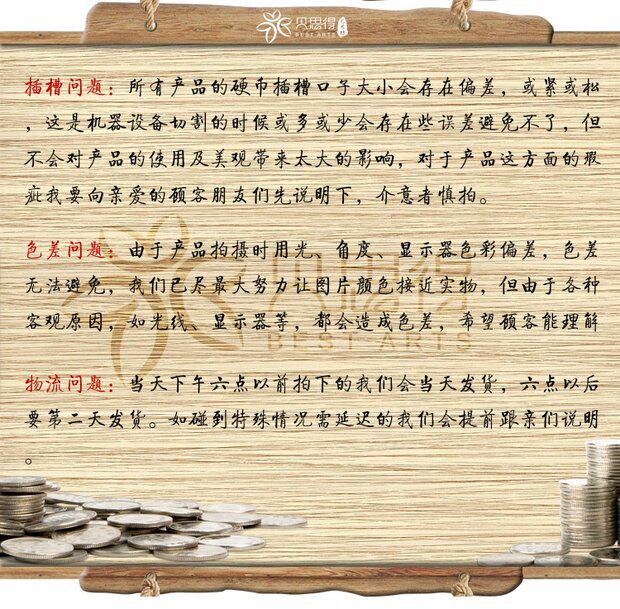 贝思得
BEST ARTS
插槽问题：所有产品的硬币插槽口子大小会存在偏差，或紧或松
，这是机器设备切割的时候或多或少会存在些误差避免不了，但
不会对产品的使用及美观带来太大的影响，对于产品这方面的瑕
疵我要向亲爱的顾客朋友们先说明下，介意者慎拍。
色差问题：由于产品拍摄时用光、角度、显示器色彩偏差，色差
无法避免，我们已尽最大努力让图片颜色接近实物，但由于各种
客观原因，如光线、显示器等，都会造成色差，希望顾客能理解
贝思得
BEST ARTS
物流问题：当天下午六点以前拍下的我们会当天发货，六点以后
要第二天发货。如碰到特殊情况需延迟的我们会提前跟亲们说明
。